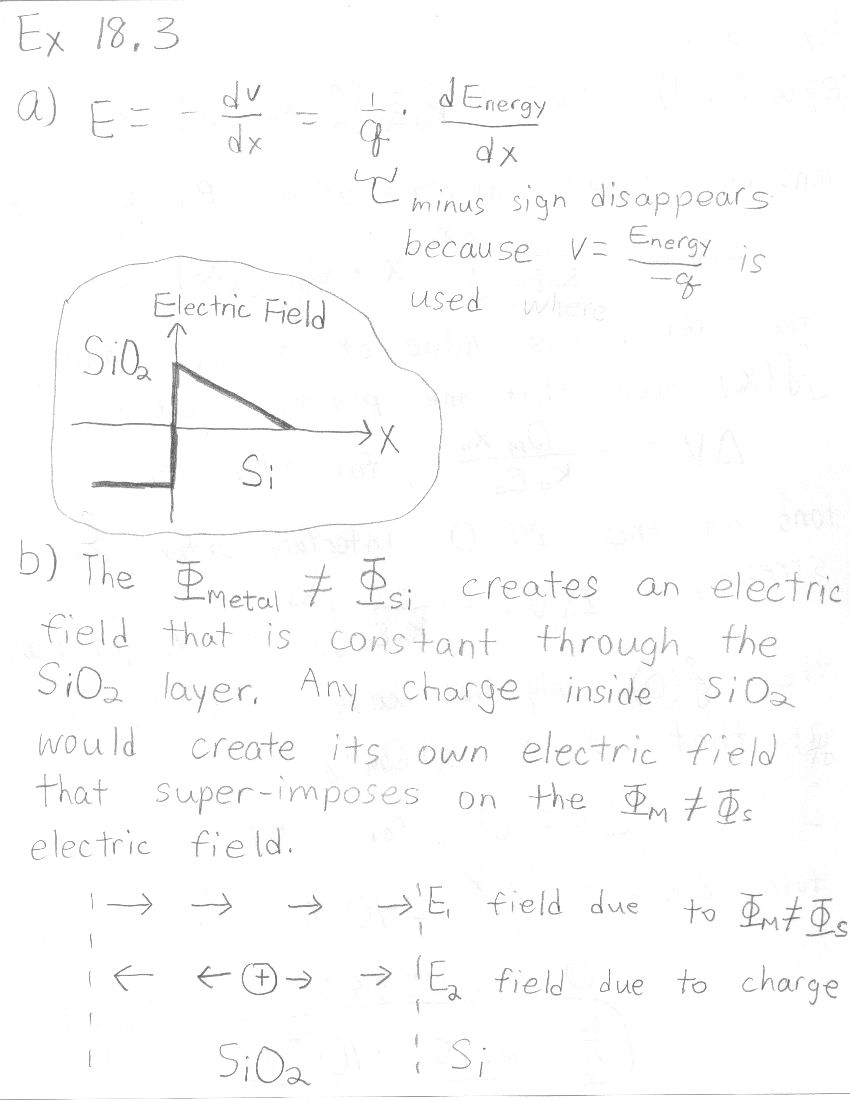 Ex 18.3
a) E = - dv/dx = 1/q · dEnergy/dx
minus sign disappears
because V = Energy/-q is
used
Electric Field
SiO₂
X
Si
b) The Φ_Metal ≠ Φ_Si creates an electric
field that is constant through the
SiO₂ layer. Any charge inside SiO₂
would create its own electric field
that super-imposes on the Φ_M ≠ Φ_S
electric field.
→ → → → E₁ field due to Φ_M ≠ Φ_S
← ← ⊕ → → E₂ field due to charge
SiO₂ Si